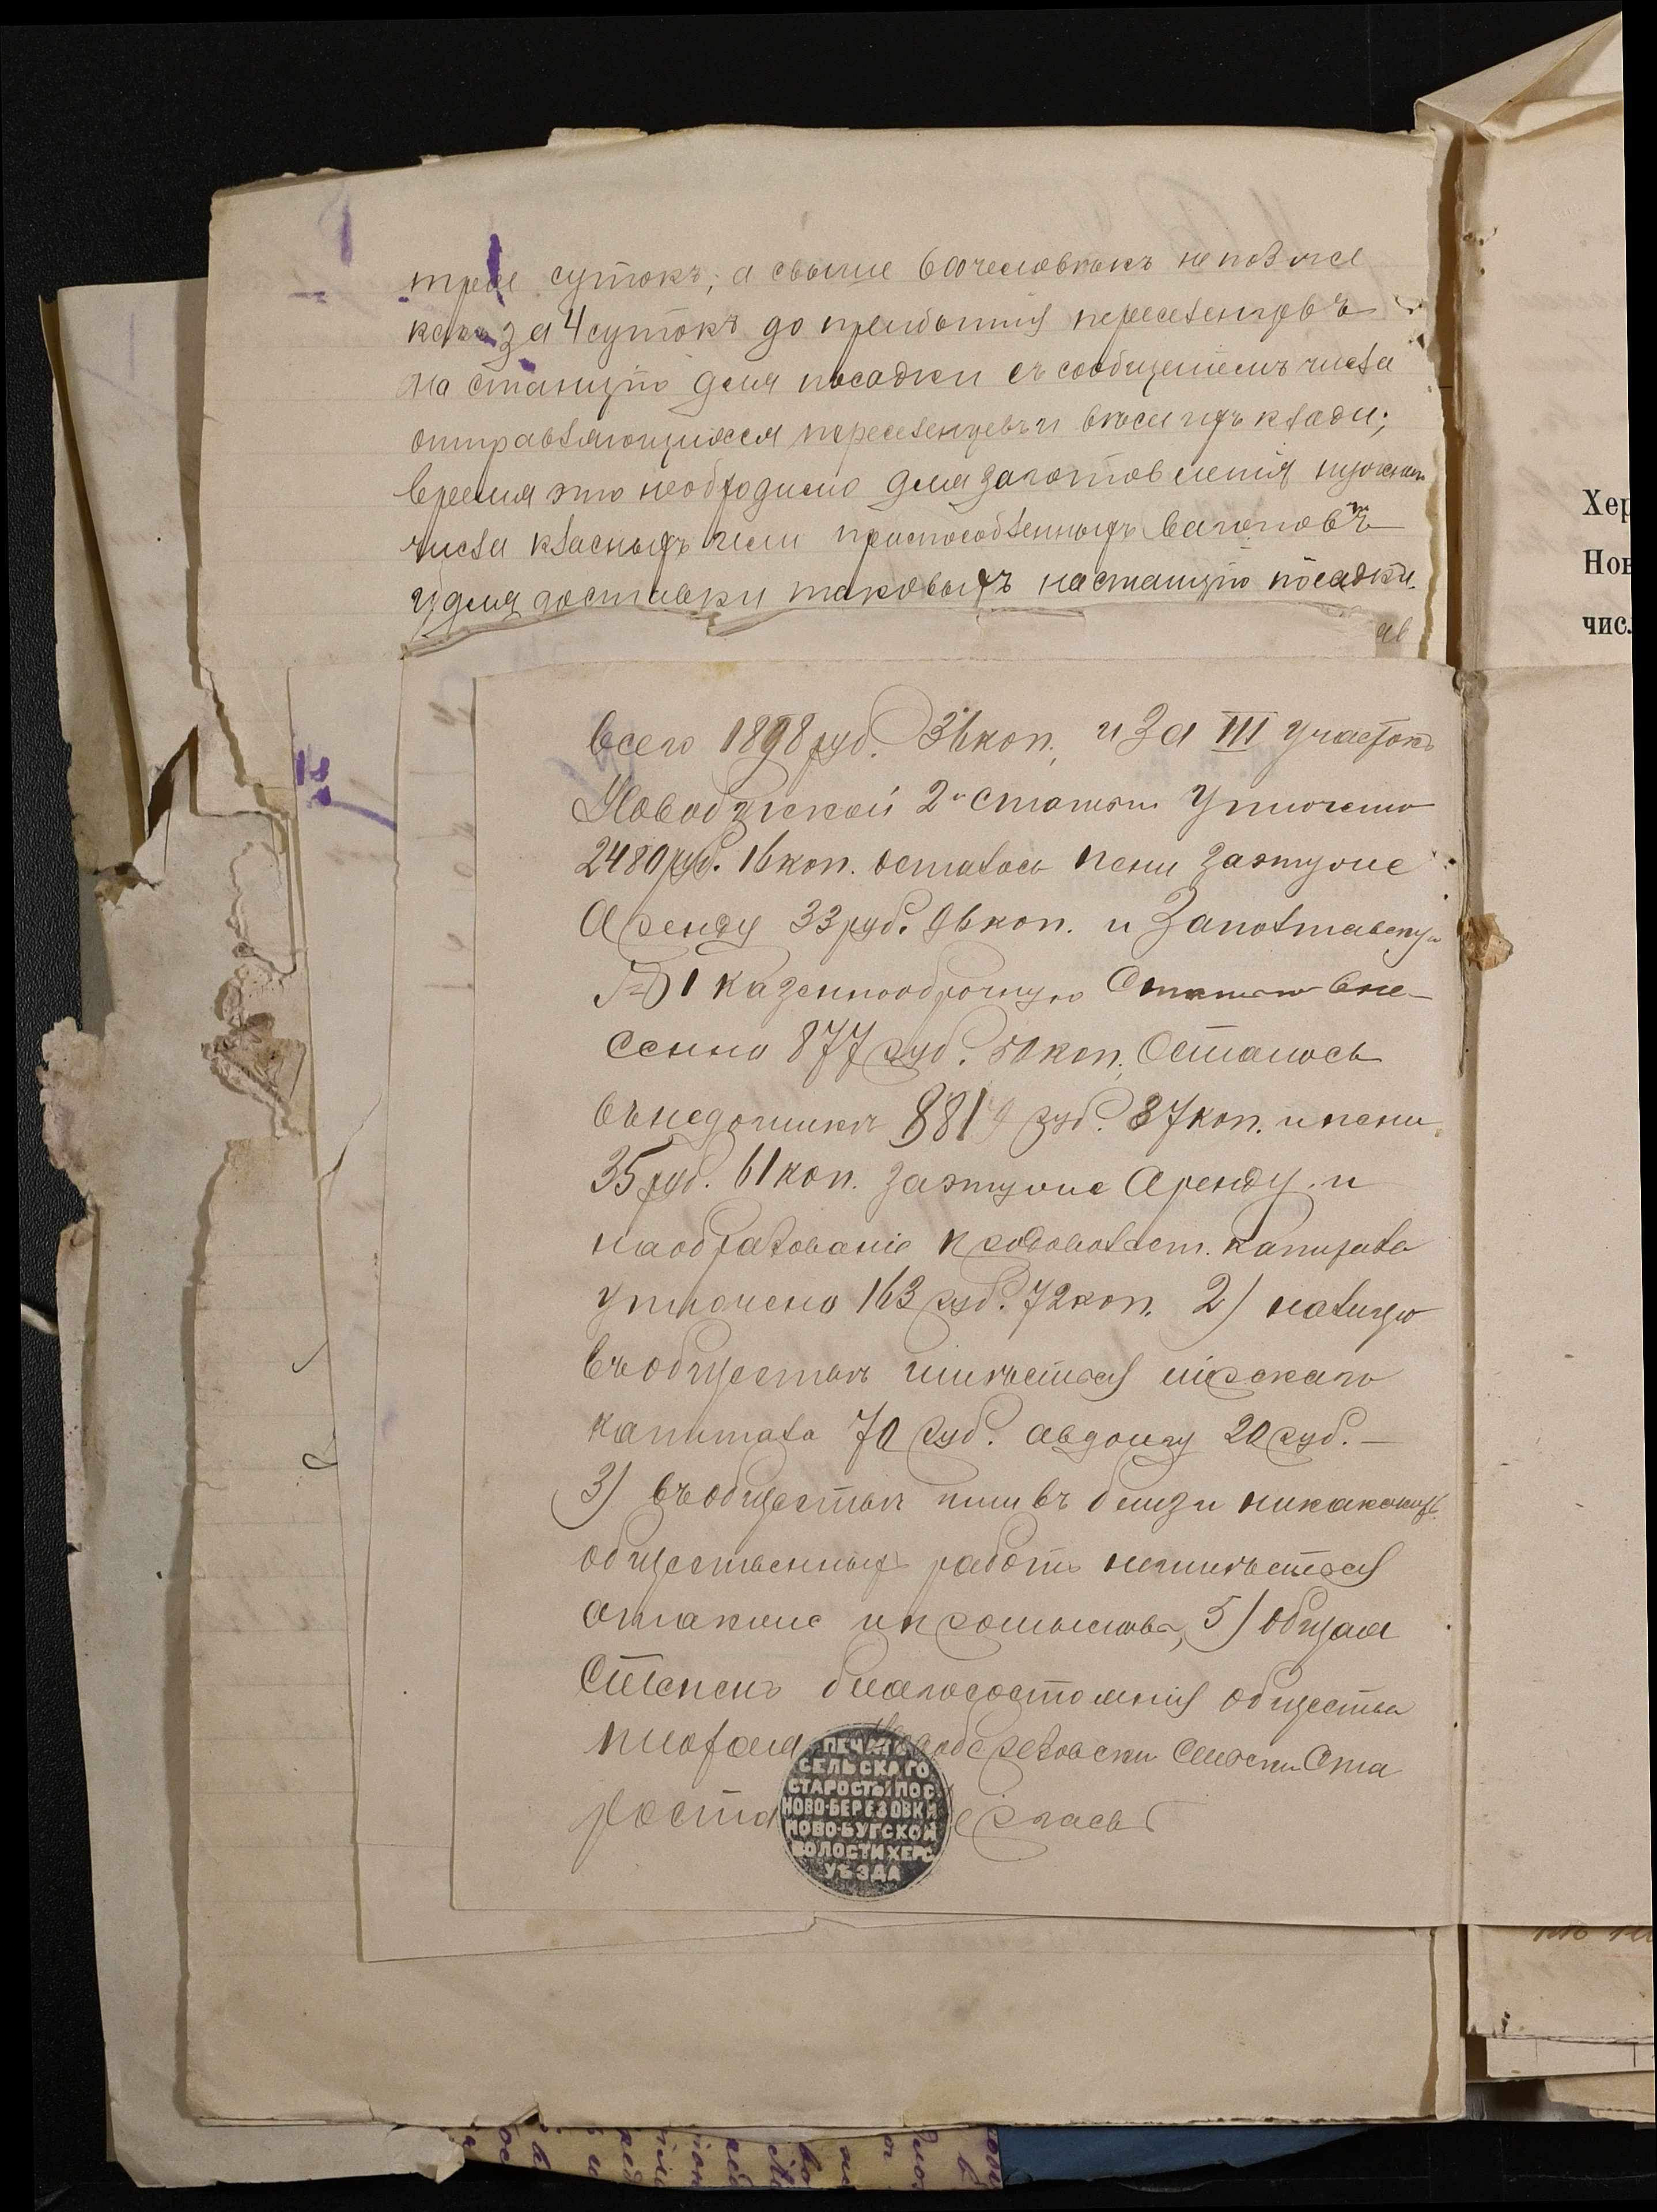 трое сутокъ; а свыше 600 человѣкъ непозже
какъ за 4 сутокъ до прибытія переселенцевъ
на станцію для посадки съ сообщеніемъ числа
отправляющихся переселенцевъ и вѣса ихъ клади;
время это необходимо для заготовленія нужнаго
числа класныхъ или приспособленныхъ вагоновъ
и для доставки таковыхъ на станцію посадки.
ав
Всего 1898 руб. 36 коп., и за III участокъ
Новобугской 2й Статьи Уплочено
2480 руб. 16 коп. осталось пени заэтуже
Аренду 33 руб. 96 коп. и Заполтавскую
№ 1 казеннооброчную Статью вне-
сенно 877 руб. 50 коп. Осталось
въ недоимкѣ 8819 руб. 87 коп. и пени
35 руб. 61 коп. заэтуже Аренду и
наобразованіе продовольст. капитала
уплочено 163 руб. 72 коп. 2) налицо
въ обществѣ имѣется мірскаго
капитала 70 руб. авдолгу 20 руб. —
3) въ обществѣ или въ близи никакихъ
общественныхъ работъ неимѣется
атакже и промысловъ, 5) Общая
Степень благосостоянія общества
плохая Новоберезовски Сельски Ста
роста
ПЕЧАТЬ
СЕЛЬСКАГО
СТАРОСТЫ ПОС
НОВО-БЕРЕЗОВКИ
НОВО-БУГСКОЙ
ВОЛОСТИ ХЕРС.
УѢЗДА
Хер
Нов
числ